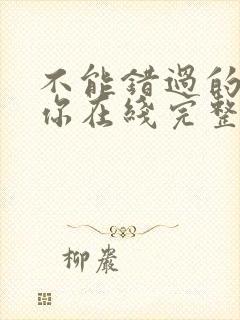 不能错過的
你在綫完整
柳巖